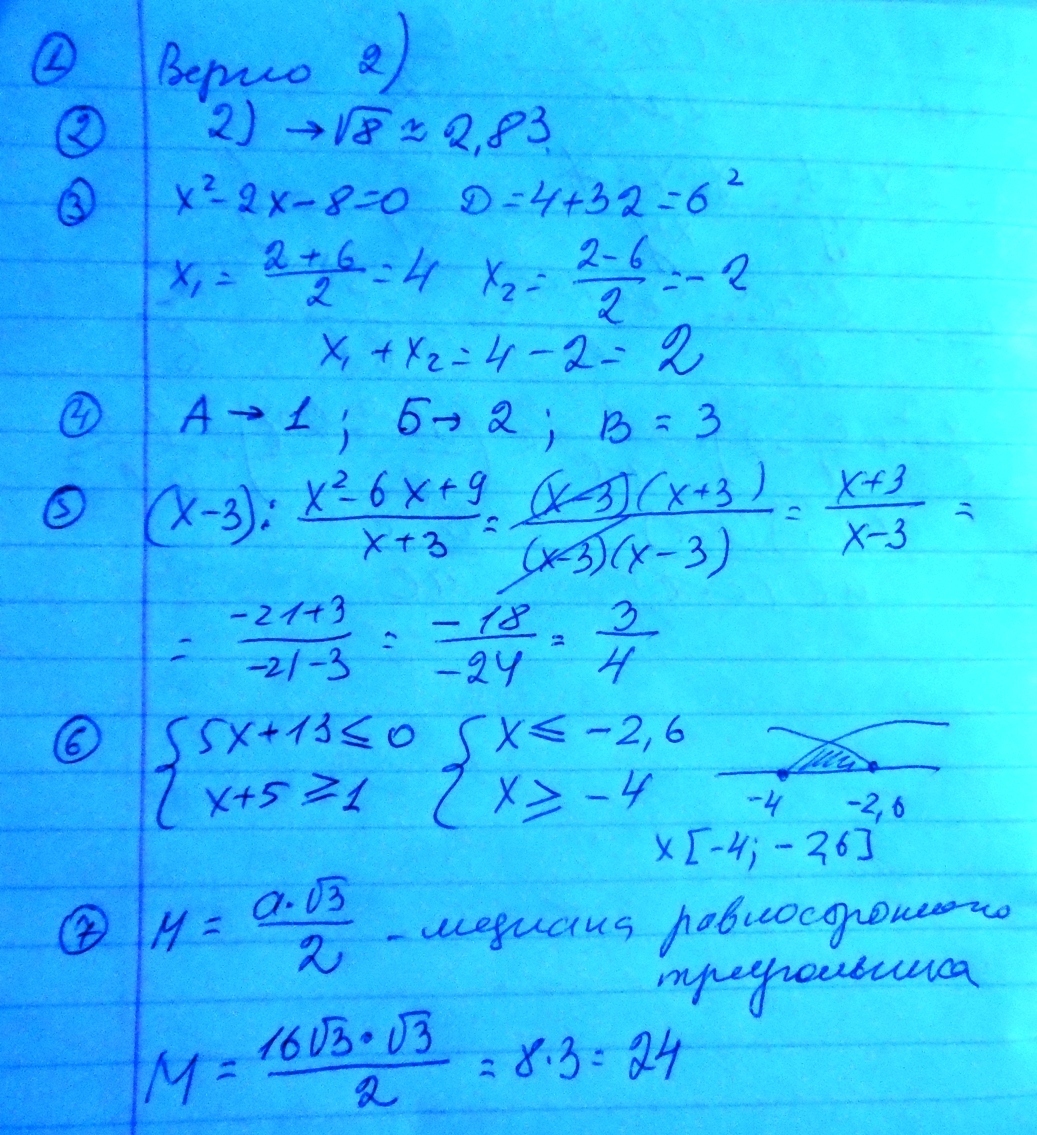 ① Верно 2)
② 2) → √8 ≈ 2,83
③ x² - 2x - 8 = 0 D = 4 + 32 = 6²
x₁ = (2 + 6)/2 = 4 x₂ = (2 - 6)/2 = -2
x₁ + x₂ = 4 - 2 = 2
④ А → 1 ; Б → 2 ; В = 3
⑤ (x-3) : (x² - 6x + 9)/(x+3) = (x-3)(x+3)/(x-3)(x-3) = (x+3)/(x-3) =
= (-21+3)/(-21-3) = (-18)/(-24) = 3/4
⑥ { 5x + 13 ≤ 0 { x ≤ -2,6
x + 5 ≥ 1 x ≥ -4
-4 -2,6
x [-4; -2,6]
⑦ М = (a·√3)/2 - медиана равностороннего
треугольника
М = (16√3·√3)/2 = 8·3 = 24